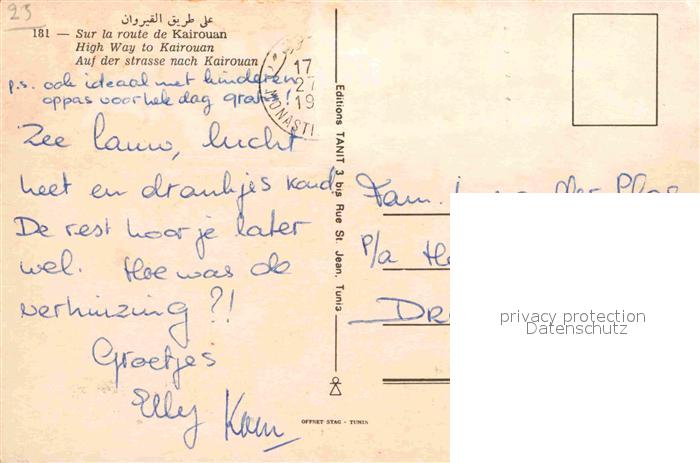 23
على طريق القيروان
181 — Sur la route de Kairouan
High Way to Kairouan
Auf der strasse nach Kairouan
p.s. ook ideaal met kinderen
oppas voor hele dag gratis!
Zee lauw, lucht
heet en drankjes koud.
De rest hoor je later
wel. Hoe was de
verhuizing?!
Groetjes
Elly
MONASTI
17
27
19
Editions TANIT 3 bis Rue St. Jean, Tunis
OFFSET STAG - TUNIS
Fam.
p/a
privacy protection
Datenschutz